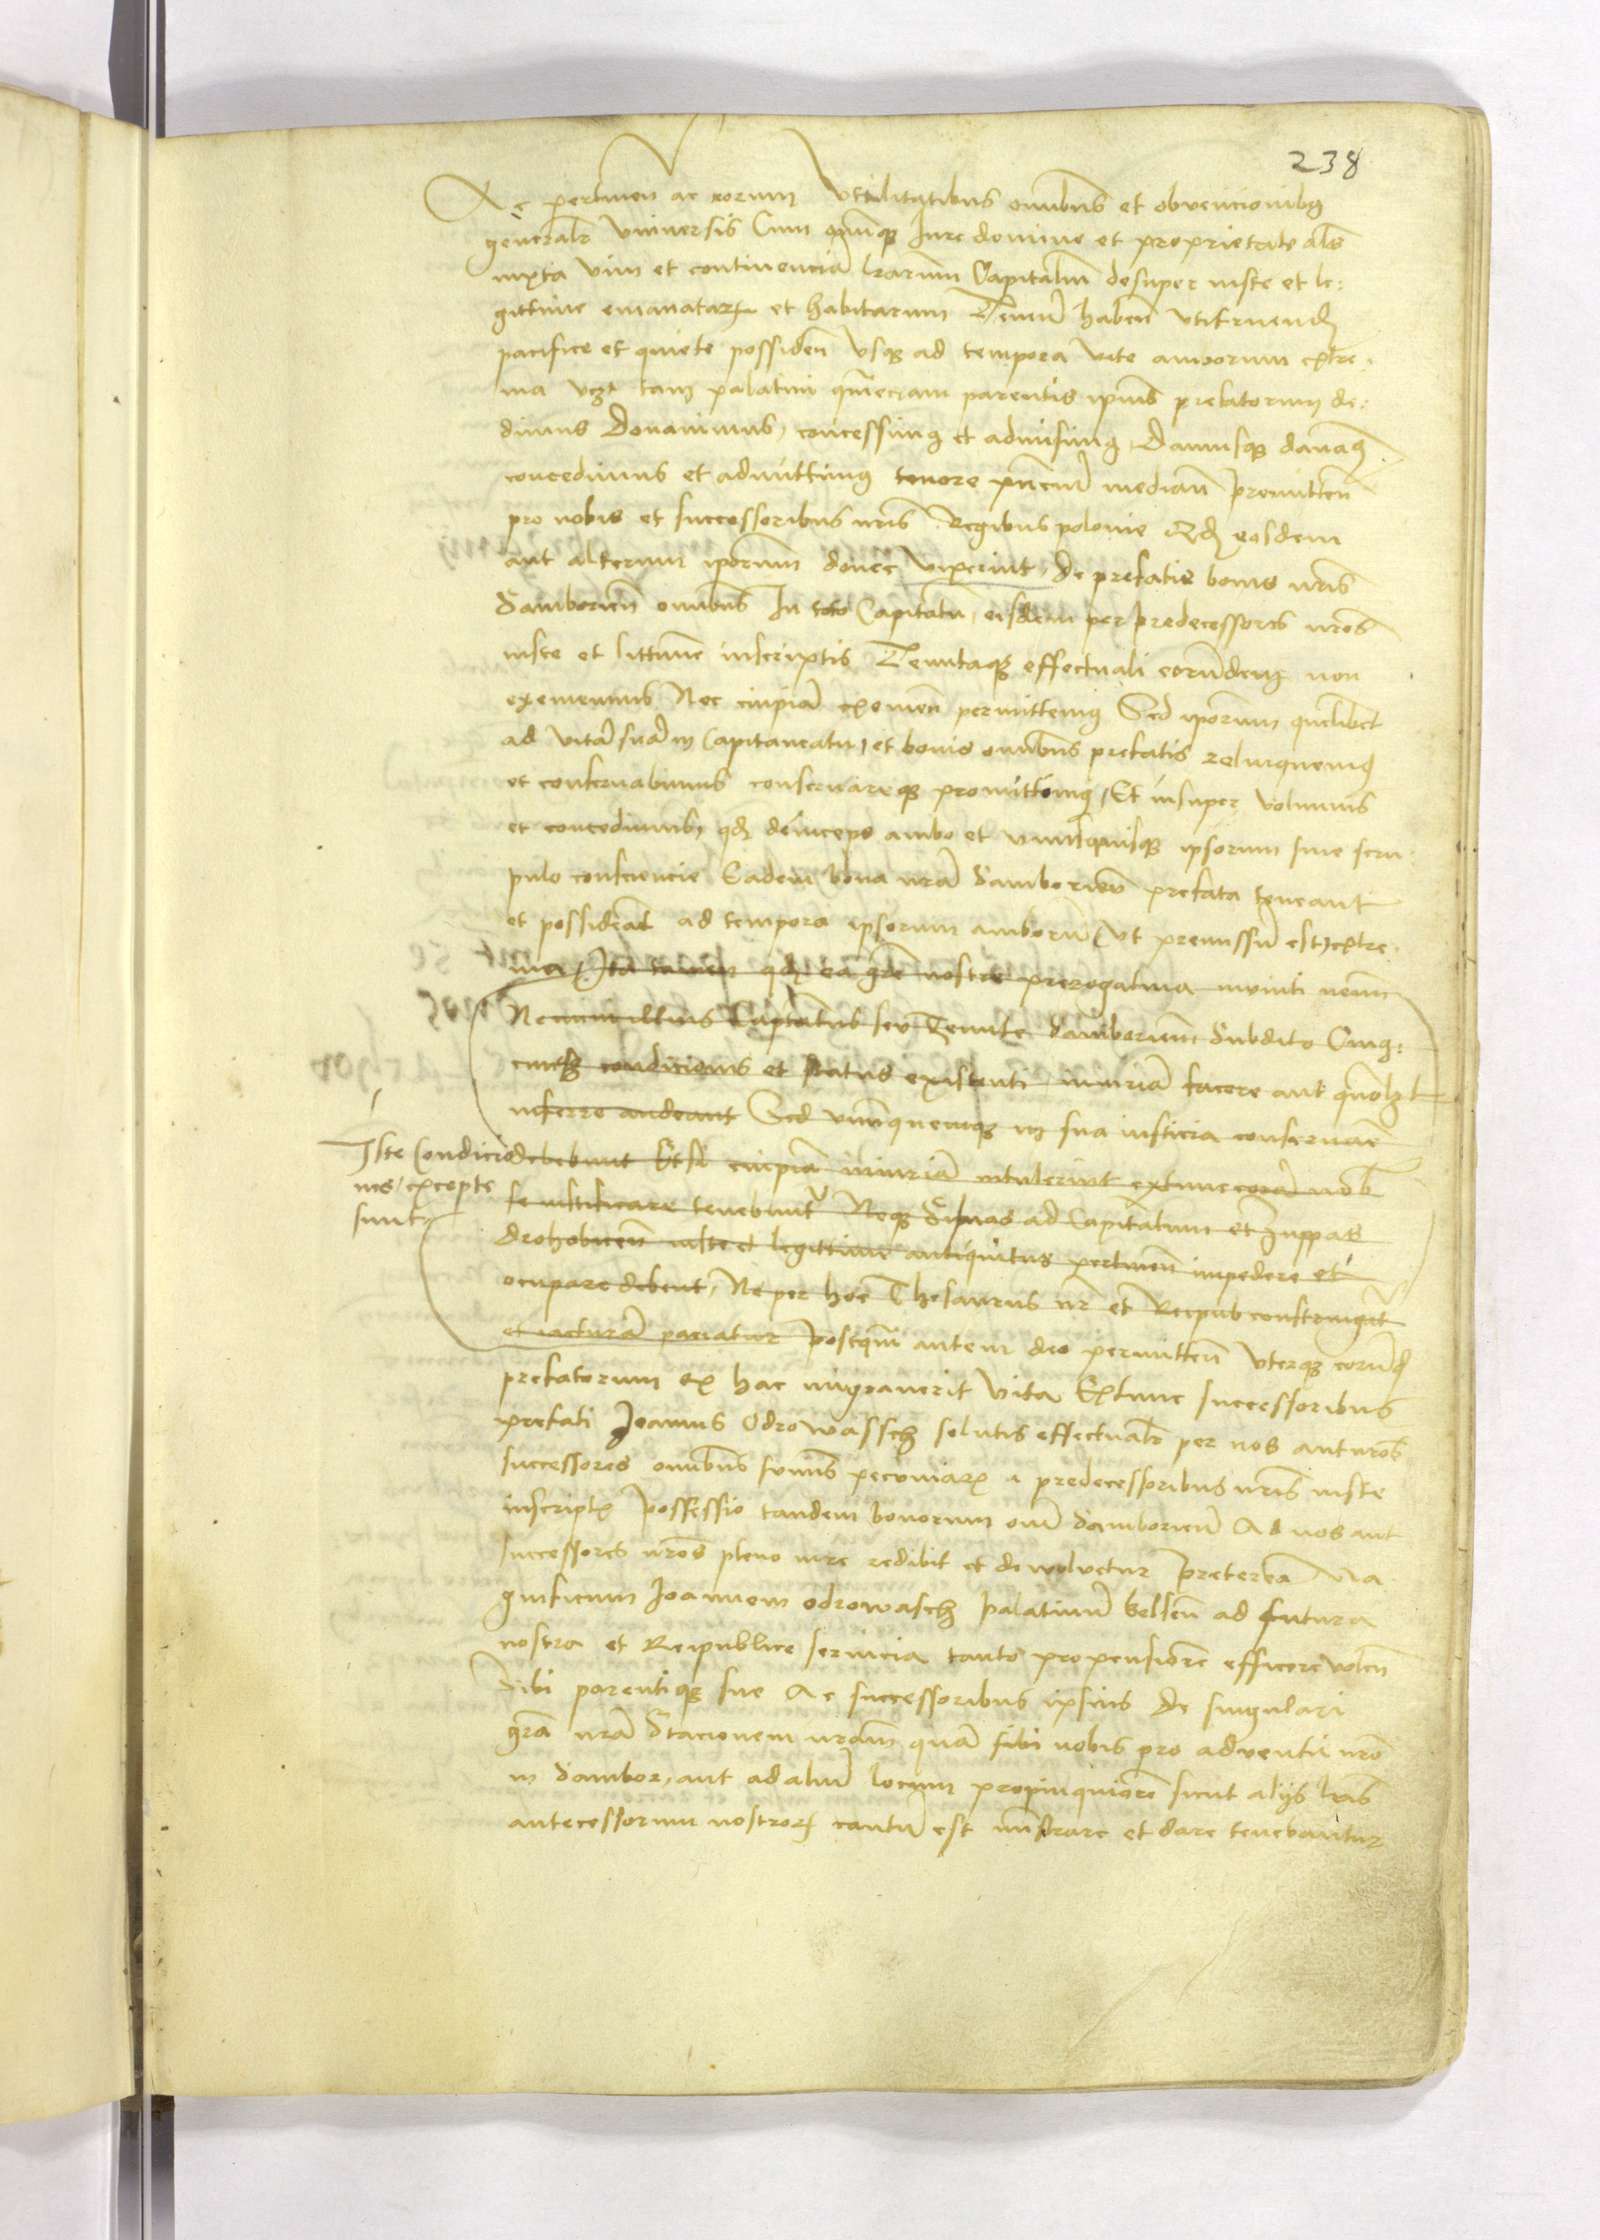 238
Ac pertinen ac eorum Vtilitatibus omnibus et obvencionibq
generalr Vniversis Cum omniq Iure dominio et proprietate als
iuxta vim et continencia lrarum Capitalium desuper iuste et le:
gittime emanatarum et habitarum Tenen haben vtifruend
pacifice et quiete possiden vsq ad tempora vite amborum extre-
ma vcz tam palatini qmeciam parentis ipius prefatorum de:
dimus Donavimus, concessimq et admisimq, Damusq donamq
concedimus et admittimq tenore pntium median promitten
pro nobis et successoribus nris Regibus polonie Qd eosdem
aut alterum iporum donec vixerint, de prefatis bonis nris
Samborien omnibus In toto Capitatu, eisdem per predecessores nros
iuste et littime inscriptis Tenutaq effectuali eorundemq non
exememus Nec cuipia eximen permittemq Sed iporum quelibet
ad vita sua in Capitaneatu, et bonis omnibus prefatis relinquemq
et conservabimus conservareq promittimq, Et insuper volumus
et concedimus, qd deinceps ambo et vnusquisq ipsorum sine scru
pulo consciencie Eadem bona nra Samborien prefata teneant
et possideat ad tempora ipsorum amborum (vt premissu est) extre-
ma, Ita tamen qd ea gre nostre prerogativa muniti nemini
Nec nullius Capitatus seu Tenute Samborien Subdito Cuiq:
cumq condicionis et status existenti, iniuria facere aut quolzt
inferre audeant Sed vnumquemq in sua iusticia conservare
debebunt Et si cuipia iniuria intulerint extunc cora nob
se iustificare tenebunt Neq Silvas ad Capitatum et Zuppas
drohobicen iuste et legittime antiquitus pertinen impedere et
ocupare debent, Ne per hoc Thesaurus nr et Reipub constringat
et iactura paciatur Postqm autem deo permitten vterq eorund
prefatorum ex hac migraverit vita Extunc successoribus
prefati Joannis Odrowassch solutis effectualr per nos aut nros
successores omnibus sumis pecuniarum a predecessoribus nris iuste
inscriptis possessio tandem bonorum oim Samborien Ad nos aut
successores nros pleno iure redibit et dewolvetur Preterea Ma
gnificum Joannem odrowasch Palatinu belsen ad futura
nostra et Reipublice servicia tanto propensiore efficere volen
Sibi parentiq sue Ac successoribus ipsius de singulari
gra nra Stacionem nram qua sibi nobis pro adventu nro
in Sambor, aut ad aliu locum propinquiore sicut alijs lris
antecessorum nostrorum cautu est mistrare et dare tenebantur
Iste Condicio
nes excepte
sunt